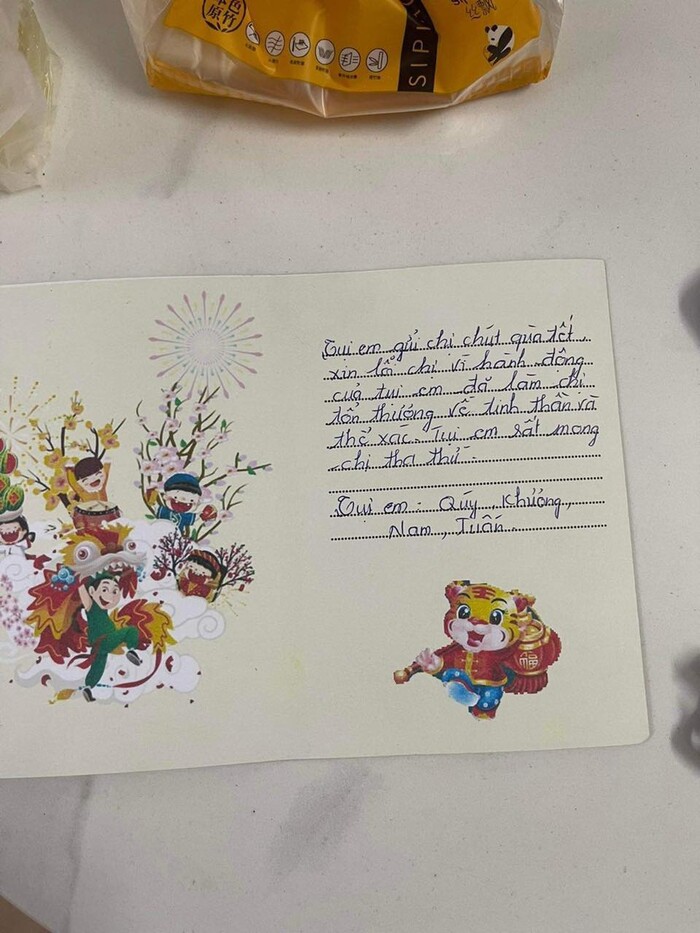 SIPI
Tụi em gửi chị chút quà tết,
xin lỗi chị vì hành động
của tụi em đã làm chị
tổn thương về tinh thần và
thể xác. Tụi em rất mong
chị tha thứ.
Tụi em: Qúy, Khương,
Nam, Tuấn.
福